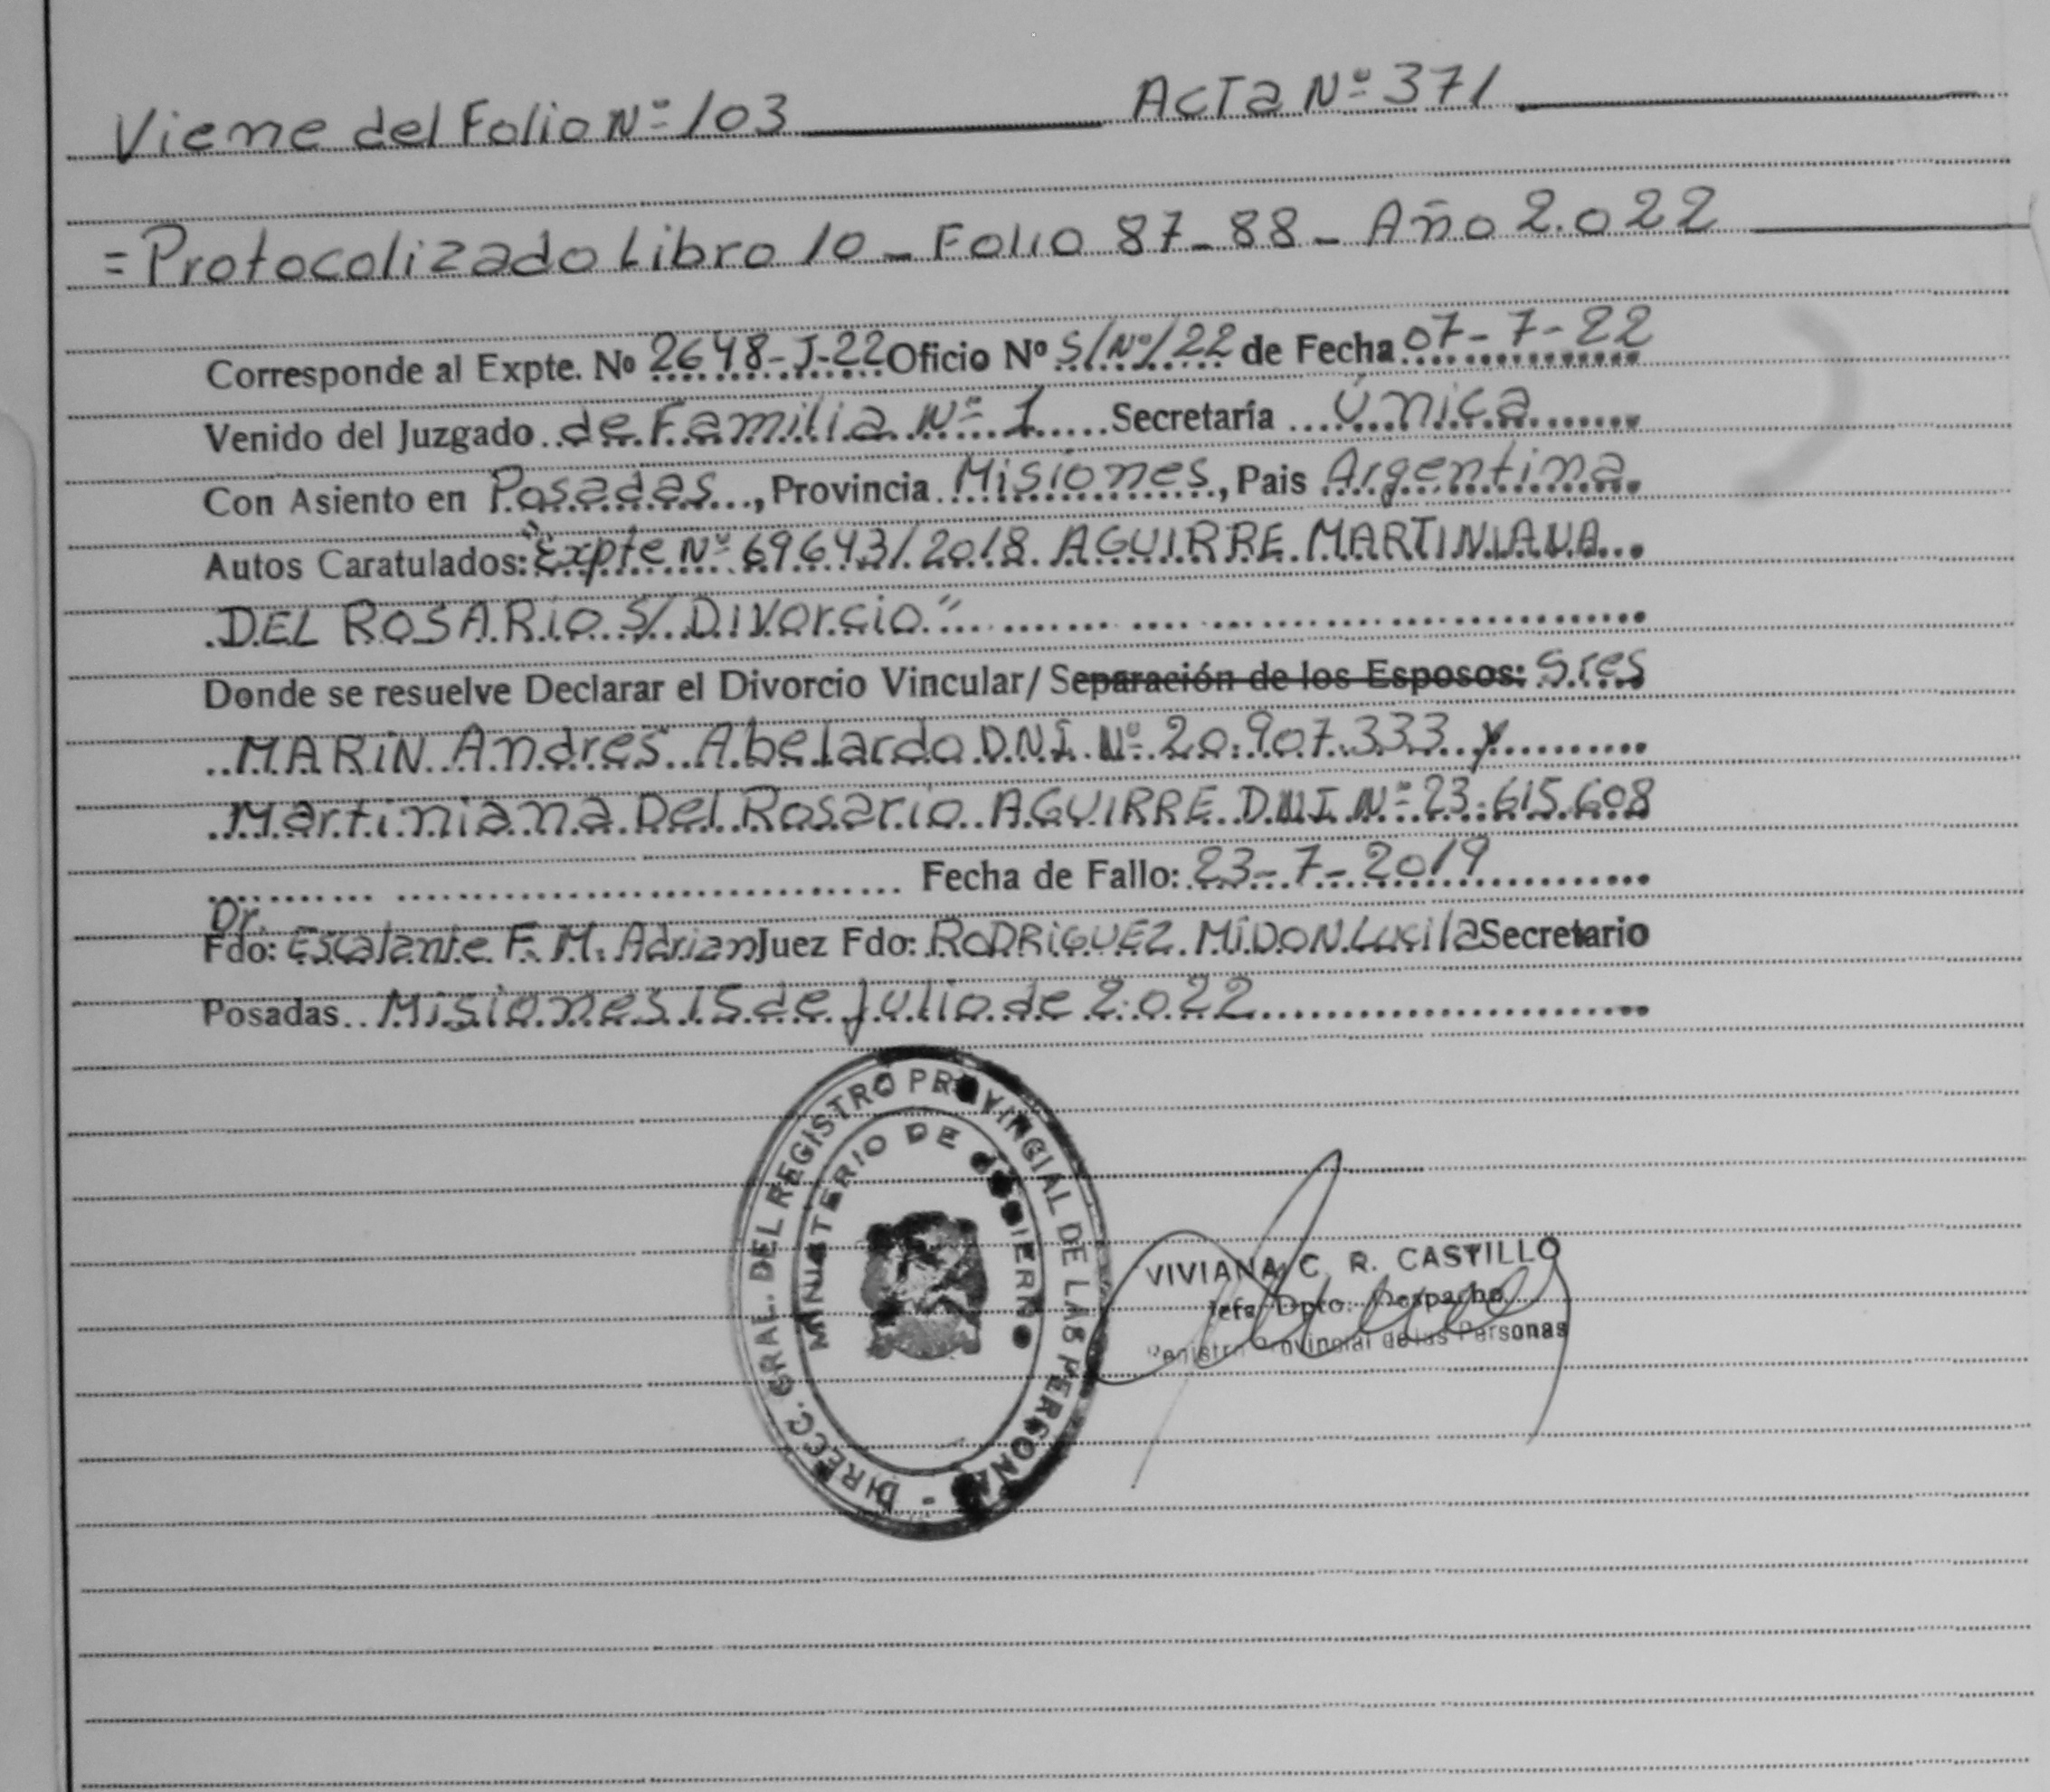 Viene del Folio Nº 103 Acta Nº 371
= Protocolizado Libro 10 - Folio 87-88 - Año 2.022
Corresponde al Expte. Nº 2648-J-22 Oficio Nº S/Nº/22 de Fecha 07-7-22
Venido del Juzgado de Familia Nº 1 Secretaría Única
Con Asiento en Posadas, Provincia Misiones, Pais Argentina
Autos Caratulados: "Expte Nº 69643/2018 AGUIRRE MARTINIANA
DEL ROSARIO S/ Divorcio"
Donde se resuelve Declarar el Divorcio Vincular/ Separación de los Esposos: Sres
MARIN Andres Abelardo D.N.I. Nº 20.907.333 y
Martiniana Del Rosario AGUIRRE D.N.I. Nº 23.615.608
Fecha de Fallo: 23-7-2019
Dr.
Fdo: Escalante F. M. Adrian Juez Fdo: RODRIGUEZ MIDON Lucila Secretario
Posadas Misiones 15 de Julio de 2.022
DIRECC. GRAL. DEL REGISTRO PROVINCIAL DE LAS PERSONAS -
MINISTERIO DE GOBIERNO
VIVIANA C. R. CASTILLO
Jefa Dpto. Despacho
Registro Provincial de las Personas